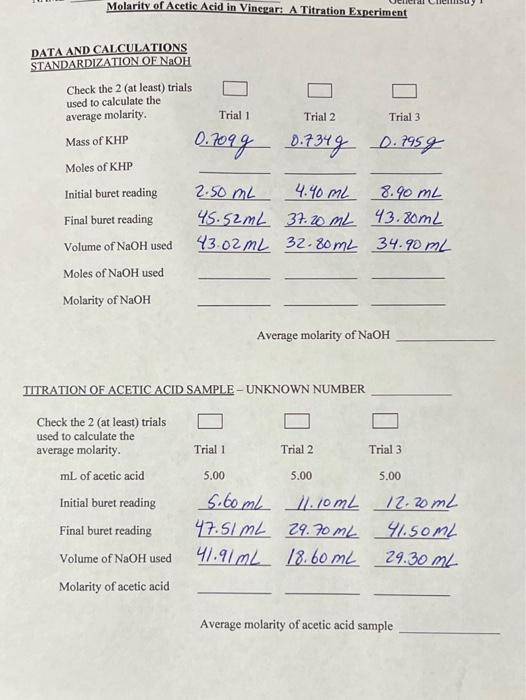 General Chemistry I
Molarity of Acetic Acid in Vinegar: A Titration Experiment
DATA AND CALCULATIONS
STANDARDIZATION OF NaOH
Check the 2 (at least) trials
used to calculate the
average molarity. Trial 1 Trial 2 Trial 3
Mass of KHP 0.709g 0.734g 0.795g
Moles of KHP
Initial buret reading 2.50 mL 4.40 mL 8.90 mL
Final buret reading 45.52mL 37.20 mL 43.80mL
Volume of NaOH used 43.02mL 32.80mL 34.90mL
Moles of NaOH used
Molarity of NaOH
Average molarity of NaOH
TITRATION OF ACETIC ACID SAMPLE – UNKNOWN NUMBER
Check the 2 (at least) trials
used to calculate the
average molarity. Trial 1 Trial 2 Trial 3
mL of acetic acid 5.00 5.00 5.00
Initial buret reading 5.60 mL 11.10mL 12.20mL
Final buret reading 47.51mL 29.70mL 41.50mL
Volume of NaOH used 41.91mL 18.60mL 29.30mL
Molarity of acetic acid
Average molarity of acetic acid sample